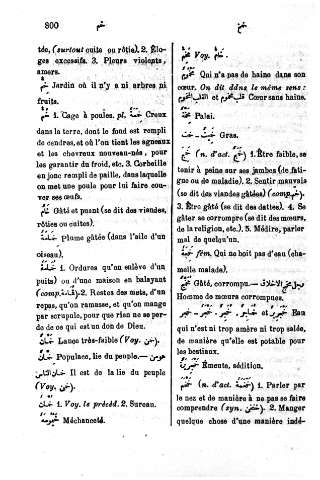 800
خم
خمج
tée, (surtout cuite ou rôtie). 2. Élo-
ges excessifs. 3. Pleurs violents,
amers.
Jardin où il n'y a ni arbres ni
fruits.
1. Cage à poules. pl. Creux
dans la terre, dont le fond est rempli
de cendres, et où l'on tient les agneaux
et les chevreux nouveau-nés, pour
les garantir du froid, etc. 3. Corbeille
en jonc rempli de paille, dans laquelle
on met une poule pour lui faire cou-
ver ses œufs.
Gâté et puant (se dit des viandes,
rôties ou cuites).
Plume gâtée (dans l'aile d'un
oiseau).
1. Ordures qu'on enlève d'un
puits) ou d'une maison en balayant
(comp. قمامة). 2. Restes des mets, d'un
repas, qu'on ramasse, et qu'on mange
par scrupule, pour que rien ne se per-
de de ce qui est un don de Dieu.
خمان Lance très-faible (Voy. خمن).
خمان Populace, lie du peuple.—
Il est de la lie du peuple
(Voy. خمن).
خمان 1. Voy. le précéd. 2. Sureau.
Méchanceté.
Voy. خمام.
Qui n'a pas de haine dans son
cœur. On dit dans le même sens :
مخموم القلب et Cœur sans haine.
Palai.
خمت — Gras.
خمج (n. d'act. خمج). 1. Être faible, se
tenir à peine sur ses jambes (de fati-
gue ou de maladie). 2. Sentir mauvais
(se dit des viandes gâtées) (comp. خم).
3. Être gâté (se dit des dattes). 4. Se
gâter se corrompre (se dit des mœurs,
de la religion, etc.). 5. Médire, parler
mal de quelqu'un.
fém. Qui ne boit pas d'eau (cha-
melle malade).
Gâté, corrompu. — مخمج الاخلاق
Homme de mœurs corrompues.
خمجرير et خماجر, خمجر Eau
qui n'est ni trop amère ni trop salée,
de manière qu'elle est potable pour
les bestiaux.
Émeute, sédition.
(n. d'act. ) 1. Parler par
le nez et de manière à ne pas se faire
comprendre (syn. ). 2. Manger
quelque chose d'une manière indé-